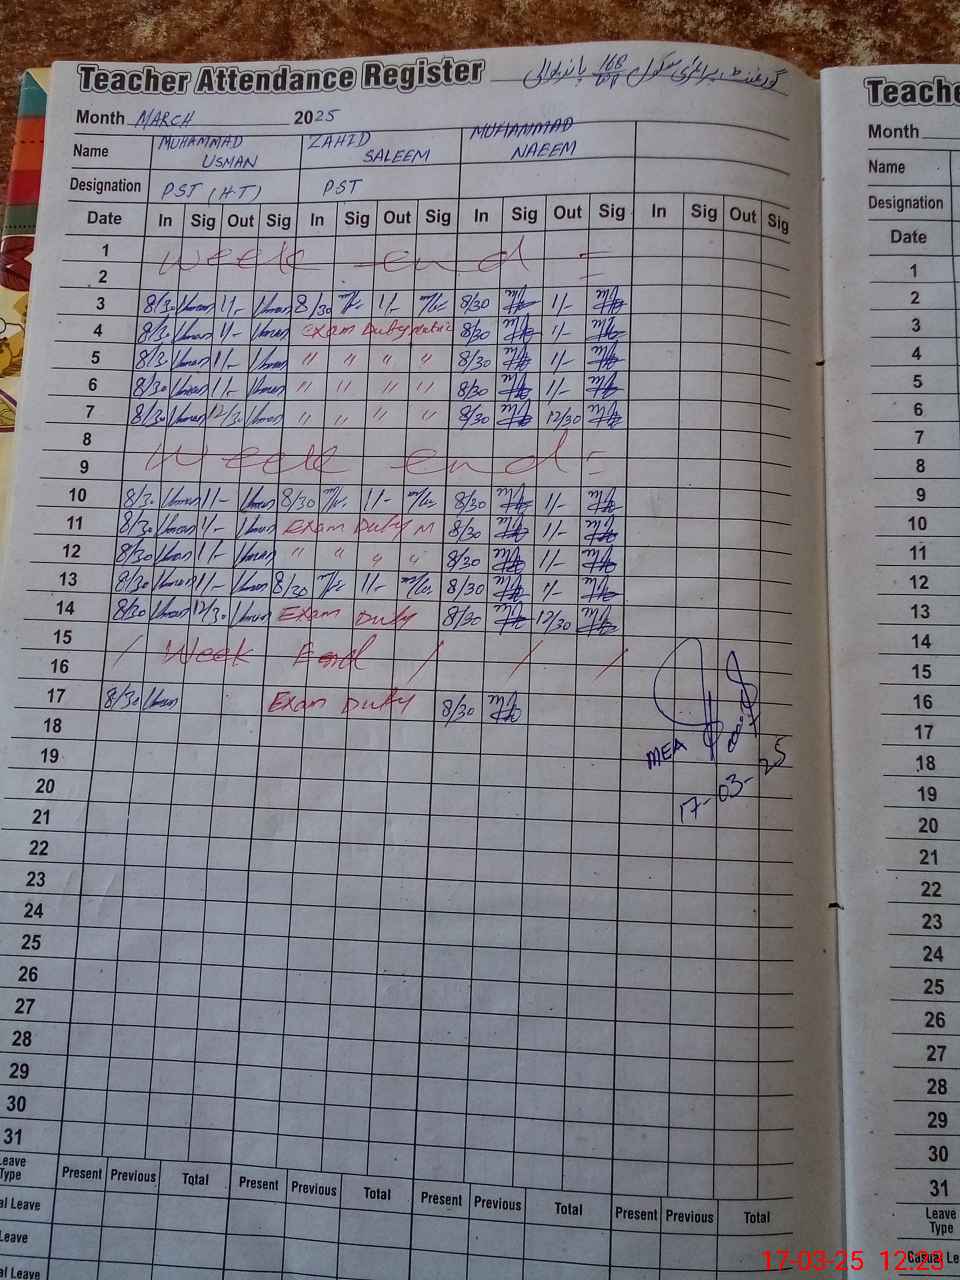 Teacher Attendance Register گورنمنٹ پرائمری سکول 168
Month MARCH 2025
Name MUHAMMAD USMAN ZAHID SALEEM MUHAMMAD NAEEM
Designation PST (H-T) PST
Date In Sig Out Sig In Sig Out Sig In Sig Out Sig In Sig Out Sig
1 Week end =
2
3 8/30 Usman 1/- Usman 8/30 1/- 8/30 1/-
4 8/30 Usman 1/- Usman Exam Duty 8/30 1/-
5 8/30 Usman 1/- Usman " " " " 8/30 1/-
6 8/30 Usman 1/- Usman " " " " 8/30 1/-
7 8/30 Usman 12/30 Usman " " " " 8/30 12/30
8 Week end =
9
10 8/30 Usman 1/- Usman 8/30 1/- 8/30 1/-
11 8/30 Usman 1/- Usman Exam Duty M 8/30 1/-
12 8/30 Usman 1/- Usman " " " " 8/30 1/-
13 8/30 Usman 1/- Usman 8/30 1/- 8/30 1/-
14 8/30 Usman 12/30 Usman Exam Duty 8/30 12/30
15 / Week End / / /
16
17 8/30 Usman Exam Duty 8/30
18
MEA
19
17-03-25
20
21
22
23
24
25
26
27
28
29
30
31
Leave Type Present Previous Total Present Previous Total Present Previous Total Present Previous Total
al Leave
Leave
al Leave
Teache
Month
Name
Designation
Date
1
2
3
4
5
6
7
8
9
10
11
12
13
14
15
16
17
18
19
20
21
22
23
24
25
26
27
28
29
30
31
Leave Type
Casual Le
17-03-25 12:23